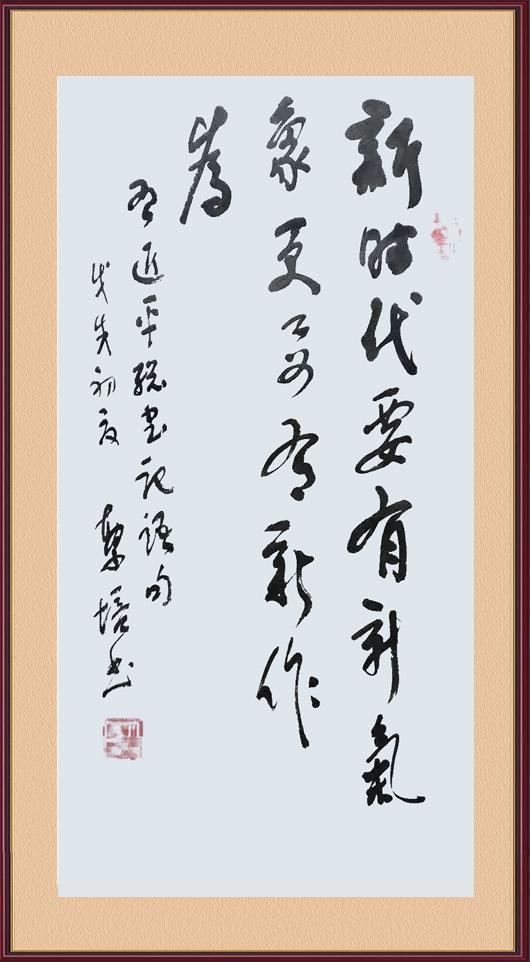 新时代要有新氣
象更要有新作
為
習近平總書記語句
戊戌初夏 培书